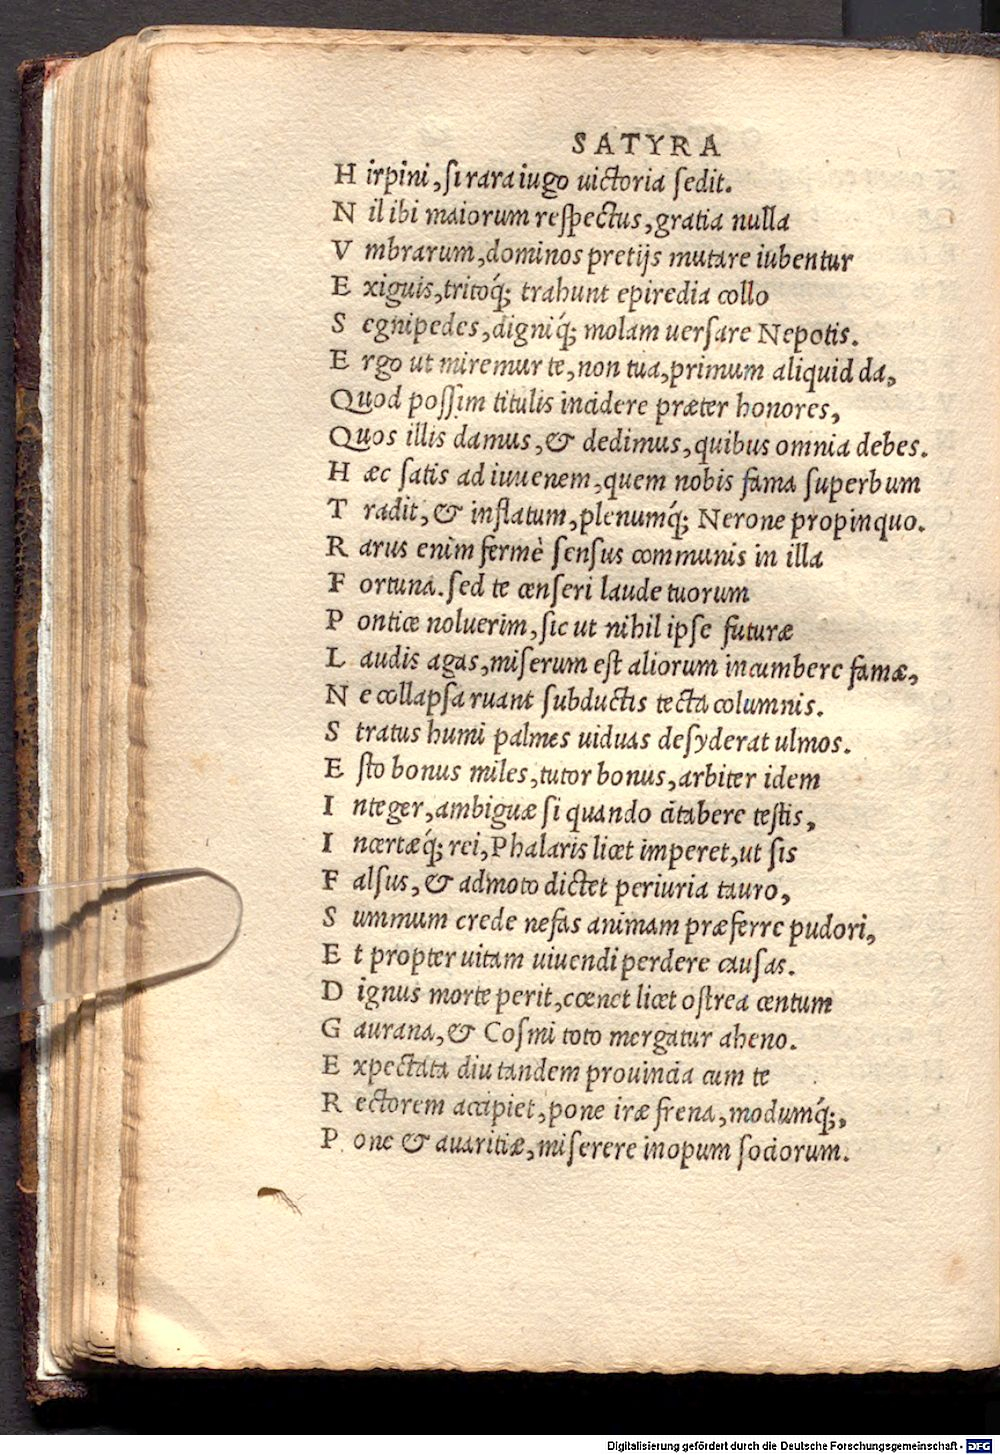 SATYRA
H irpini, si rara iugo uictoria sedit.
N il ibi maiorum respectus, gratia nulla
V mbrarum, dominos pretijs mutare iubentur
E xiguis, tritoq́; trahunt epiredia collo
S egnipedes, digniq́; molam uersare Nepotis.
E rgo ut miremur te, non tua, primum aliquid da,
Quod possim titulis incidere præter honores,
Quos illis damus, & dedimus, quibus omnia debes.
H æc satis ad iuuenem, quem nobis fama superbum
T radit, & inflatum, plenumq́; Nerone propinquo.
R arus enim fermè sensus communis in illa
F ortuna. sed te censeri laude tuorum
P ontice noluerim, sic ut nihil ipse futuræ
L audis agas, miserum est aliorum incumbere famæ,
N e collapsa ruant subductis tecta columnis.
S tratus humi palmes uiduas desyderat ulmos.
E sto bonus miles, tutor bonus, arbiter idem
I nteger, ambiguæ si quando citabere testis,
I ncertæq́; rei, Phalaris licet imperet, ut sis
F alsus, & admoto dictet periuria tauro,
S ummum crede nefas animam præferre pudori,
E t propter uitam uiuendi perdere causas.
D ignus morte perit, cœnet licet ostrea centum
G aurana, & Cosmi toto mergatur aheno.
E xpectata diu tandem prouincia cum te
R ectorem accipiet, pone iræ frena, modumq́;,
P one & auaritiæ, miserere inopum sociorum.
Digitalisierung gefördert durch die Deutsche Forschungsgemeinschaft - DFG